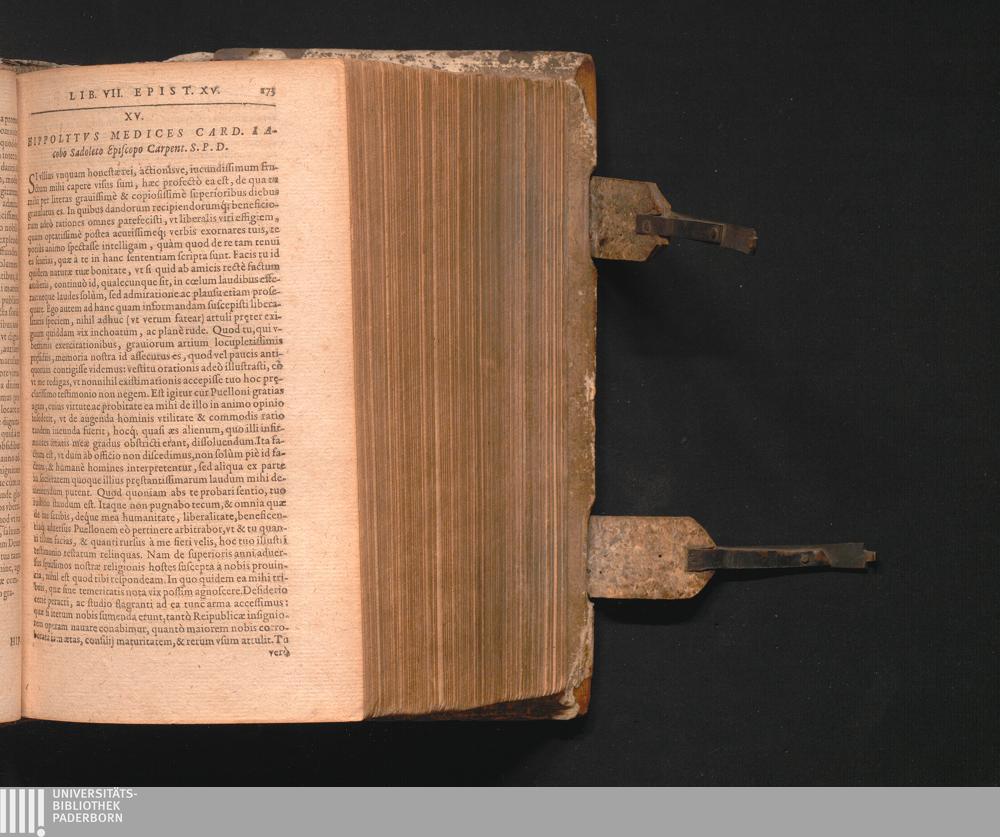 LIB. VII. EPIST. XV. 173
XV.
HIPPOLYTVS MEDICES CARD. IA-
cobo Sadoleto Episcopo Carpent. S. P. D.
SI vllius vnquam honestæ rei, actionisve, iucundissimum fru-
ctum mihi capere visus sum, hæc profectò ea est, de qua tu
mihi per literas grauissimè & copiosissimè superioribus diebus
gratulatus es. In quibus dandorum recipiendorumq; beneficio-
rum adeò rationes omnes patefecisti, vt liberalis viri effigiem,
quam optatissimè postea acutissimeq; verbis exornares tuis, te
potius animo spectasse intelligam, quàm quod de re tam tenui
ea sentias, quæ à te in hanc sententiam scripta sunt. Facis tu id
quidem naturæ tuæ bonitate, vt si quid ab amicis rectè factum
audieris, continuò id, qualecunque sit, in cœlum laudibus effe-
ras: neque laudes solùm, sed admiratione ac plausu etiam prose-
quare. Ego autem ad hanc quam informandam suscepisti libera-
litatis speciem, nihil adhuc (vt verum fatear) attuli pręter exi-
guum quiddam vix inchoatum, ac planè rude. Quod tu, qui v-
berrimis exercitationibus, grauiorum artium locupletissimis
præsidiis, memoria nostra id assecutus es, quod vel paucis anti-
quorum contigisse videmus: vestitu orationis adeò illustrasti, eò
vt me redigas, vt nonnihil existimationis accepisse tuo hoc prę-
clarissimo testimonio non negem. Est igitur cur Puelloni gratias
agam, cuius virtute ac probitate ea mihi de illo in animo opinio
insederit, vt de augenda hominis vtilitate & commodis ratio
tandem iucunda fuerit, hocq; quasi æs alienum, quo illi
ætatis meæ gradus obstricti erant, dissoluendum. Ita fa-
ctum est, vt dum ab officio non discedimus, non solùm piè id fa-
ctum, & humanè homines interpretentur, sed aliqua ex parte
in societatem quoque illius pręstantissimarum laudum mihi de-
ueniendum putent. Quod quoniam abs te probari sentio, tuo
iudicio standum est. Itaque non pugnabo tecum, & omnia quæ
de me scribis, deque mea humanitate, liberalitate, beneficen-
tiaq; aduersus Puellonem eò pertinere arbitrabor, vt & tu quan-
ti illum facias, & quanti rursus à me fieri velis, hoc tuo illustri
testimonio testatum relinquas. Nam de superioris anni aduer-
sus spurcissimos nostræ religionis hostes suscepta à nobis prouin-
cia, nihil est quod tibi respondeam. In quo quidem ea mihi tri-
buis, quæ sine temeritatis nota vix possim agnoscere. Desiderio
certè peracri, ac studio flagranti ad ea tunc arma accessimus:
quæ si iterum nobis sumenda erunt, tantò Reipublicæ insignio-
rem operam nauare conabimur, quantò maiorem nobis corro-
borata iam ætas, consilij maturitatem, & rerum vsum attulit. Tu
verò
UNIVERSITÄTS-
BIBLIOTHEK
PADERBORN